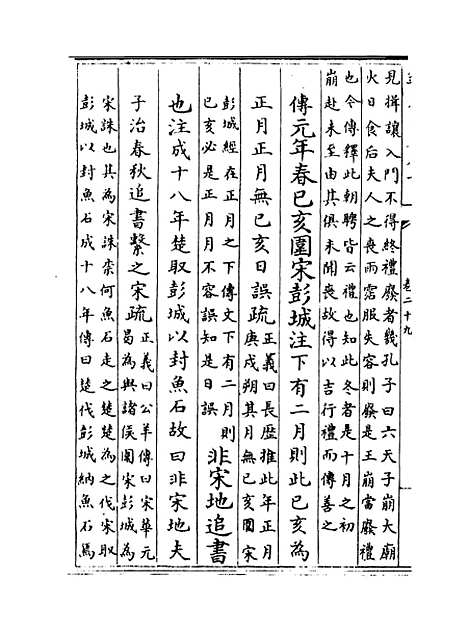 見揖讓入門不得終禮廢者幾孔子曰六天子崩大廟
火日食后夫人之喪雨霑服失容則廢是王崩當廢禮
也今傳釋此朝聘皆云禮也知此冬者是十月之初
崩赴未至由其俱未聞喪故得以吉行禮而傳善之
傳元年春己亥圍宋彭城注下有二月則此己亥為
正月正月無己亥日誤疏正義曰長歷推此年正月
庚戌朔其月無己亥圍宋
彭城經在正月之下傳文下有二月則
己亥必是正月月不容誤知是日誤
非宋地追書
也注成十八年楚取彭城以封魚石故曰非宋地夫
子治春秋追書繫之宋疏正義曰公羊傳曰宋華元
曷為與諸侯圍宋彭城為
宋誅也其為宋誅柰何魚石走之楚楚為之伐宋取
彭城以封魚石成十八年傳曰楚伐彭城納魚石焉
卷二十九